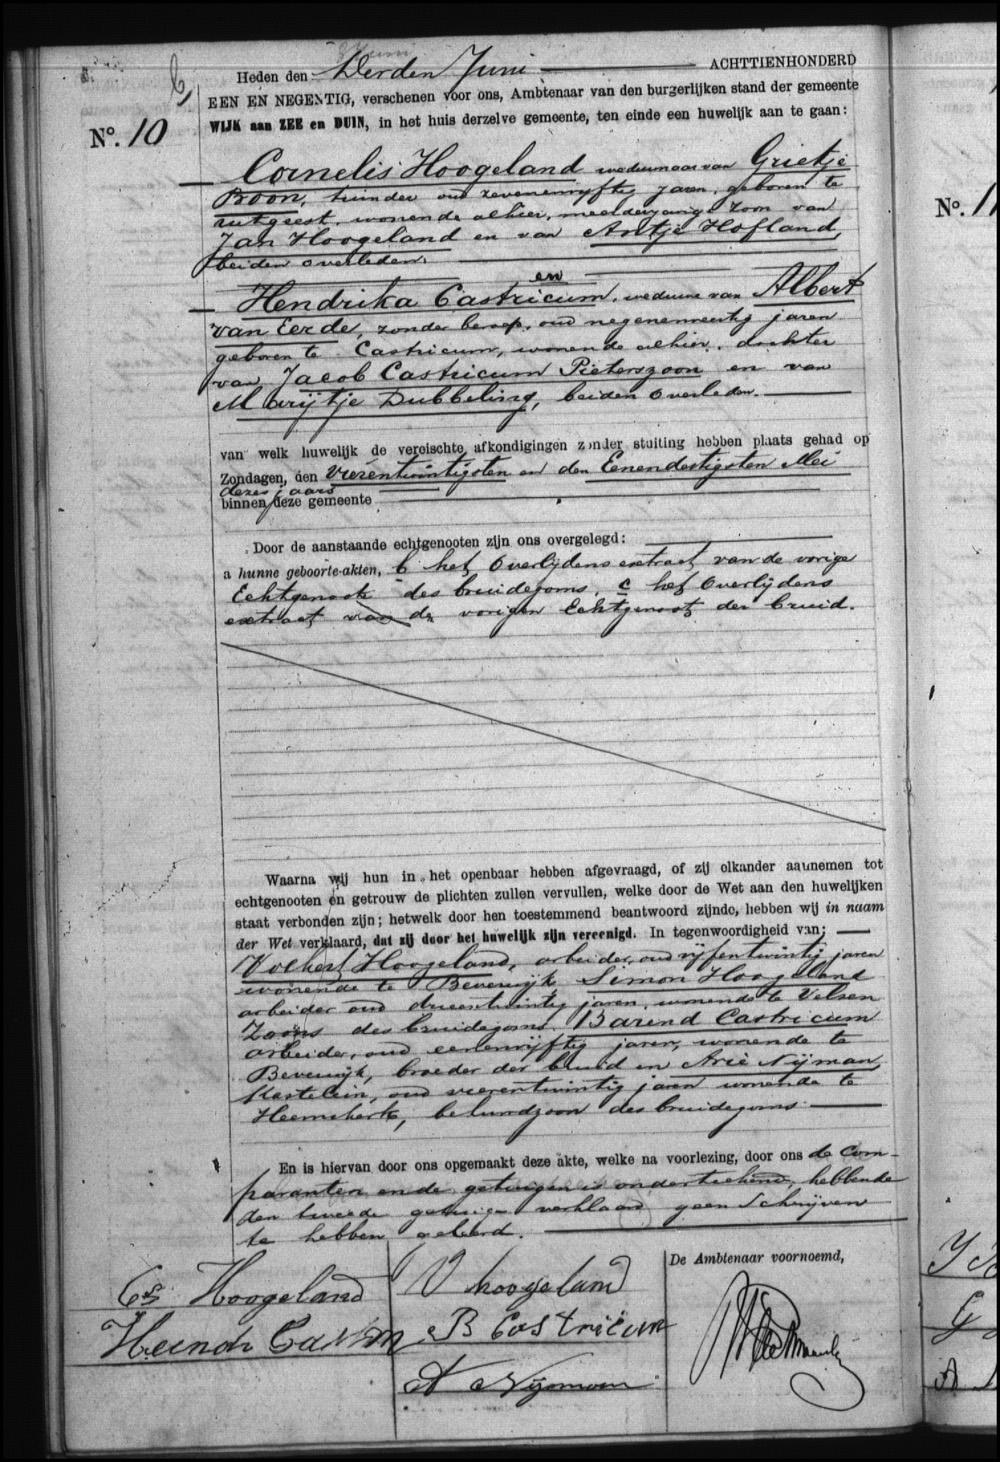 Heden den Derden Juni ACHTTIENHONDERD
EEN EN NEGENTIG, verschenen voor ons, Ambtenaar van den burgerlijken stand der gemeente
No. 10 WIJK aan ZEE en DUIN, in het huis derzelve gemeente, ten einde een huwelijk aan te gaan:
Cornelis Hoogeland weduwnaar van Grietje
Boon, tuinder oud zevenenvijftig jaren, geboren te
uitgeest, wonende alhier, meerderjarige zoon van
Jan Hoogeland en van Antje Hofland,
beiden overleden.
en
Hendrika Castricum, weduwe van Albert
van Eerde, zonder beroep, oud negenenveertig jaren
geboren te Castricum, wonende alhier, dochter
van Jacob Castricum Pieterszoon en van
Marijtje Dubbeling, beiden overleden.
van welk huwelijk de vereischte afkondigingen zonder stuiting hebben plaats gehad op
Zondagen, den Vierentwintigsten en den Eenendertigsten Mei
dezes jaars
binnen deze gemeente
Door de aanstaande echtgenooten zijn ons overgelegd:
a hunne geboorte-akten, b het Overlijdens extract van de vorige
Echtgenoote des bruidegoms, c het Overlijdens
extract van de vorigen Echtgenoot der bruid.
Waarna wij hun in het openbaar hebben afgevraagd, of zij elkander aannemen tot
echtgenooten en getrouw de plichten zullen vervullen, welke door de Wet aan den huwelijken
staat verbonden zijn; hetwelk door hen toestemmend beantwoord zijnde, hebben wij in naam
der Wet verklaard, dat zij door het huwelijk zijn vereenigd. In tegenwoordigheid van:
Volkert Hoogeland, arbeider, oud vijfentwintig jaren
wonende te Beverwijk, Simon Hoogeland
arbeider oud drieentwintig jaren, wonende te Velsen
Zoons des bruidegoms, Barend Castricum
arbeider, oud eenenvijftig jaren, wonende te
Beverwijk, broeder der bruid en Arie Nijman,
Kastelein, oud vierentwintig jaren wonende te
Heemskerk, behuwdzoon des bruidegoms
En is hiervan door ons opgemaakt deze akte, welke na voorlezing, door ons de Com-
paranten en de getuigen is onderteekend, hebbende
den tweede getuige verklaard geen Schrijven
te hebben geleerd.
De Ambtenaar voornoemd,
Cs Hoogeland
V hoogeland
B Castricum
A Nijman
No. 11